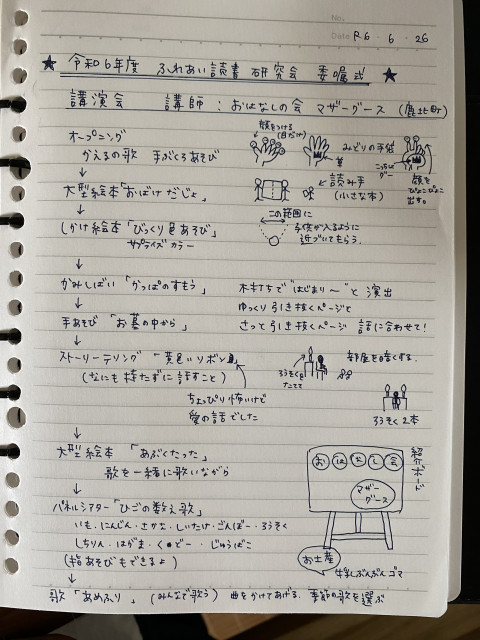 No.
Date R6・6・26
★ 令和6年度 ふれあい読書研究会 委嘱式 ★
講演会 講師：おはなしの会 マザーグース (鹿北町)
オープニング
かえるの歌 手ぶくろあそび
顔をつける(目だけ)
みどりの手袋
こっちはグー
顔をぴょこぴょこ出す。
↓
大型絵本「おばけだじょ」
読み手
(小さな本)
↓
しかけ絵本「びっくり色あそび」
サプライズカラー
この範囲に
子供が入るように
近づいてもらう。
↓
かみしばい「かっぱのすもう」
木打ちで"はじまり〜"と演出
ゆっくり引き抜くページと
↓
手あそび「お墓の中から」
さっと引き抜くページ 話に合わせて!
↓
ストーリーテリング「黄色いリボン」
(なにも持たずに話すこと)
ろうそくをたてて
部屋を暗くする。
ちょっぴり怖いけど
愛の話でした
ろうそく2本
↓
大型絵本 「あぶくたった」
歌を一緒に歌いながら
おはなし会
マザーグース
紹介ボード
↓
パネルシアター「ひごの数え歌」
いも・にんじん・さかな・しいたけ・ごんぼー・ろうそく
しちりん・はがま・くぁどー・じゅうばこ
(指あそびもできるよ)
お土産
牛乳ぶんぶんゴマ
↓
歌「あめふり」 (みんなで歌う) 曲をかけてあげる。季節の歌を選ぶ